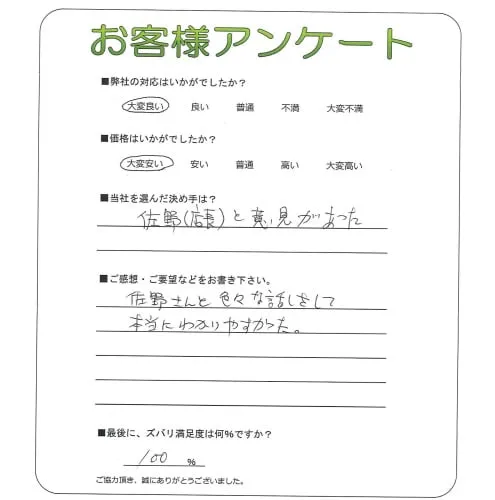 お客様アンケート
■弊社の対応はいかがでしたか？
大変良い 良い 普通 不満 大変不満
■価格はいかがでしたか？
大変安い 安い 普通 高い 大変高い
■当社を選んだ決め手は？
佐野(店長)と意見があった
■ご感想・ご要望などをお書き下さい。
佐野さんと色々な話しをして
本当にわかりやすかった。
■最後に、ズバリ満足度は何%ですか？
100 %
ご協力頂き、誠にありがとうございました。